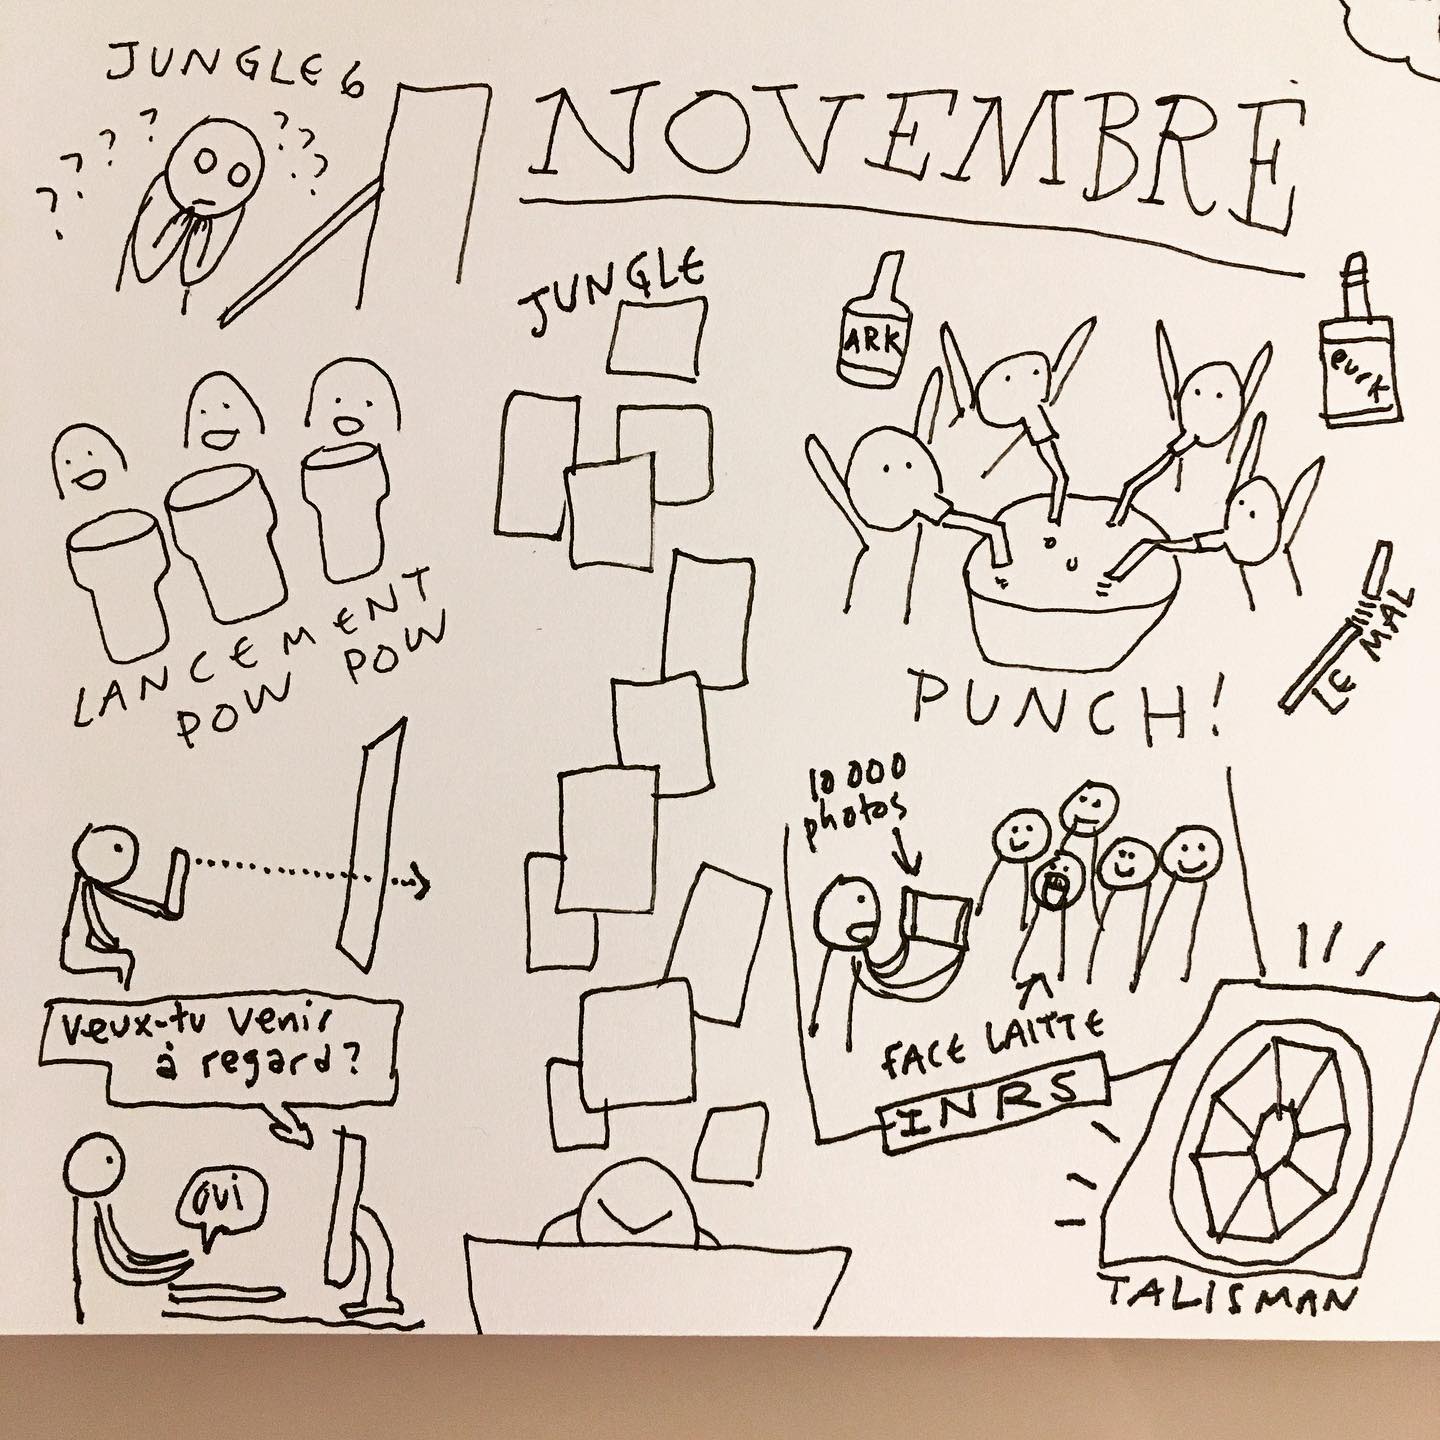 JUNGLE 6
? ? ? ? ? ? ?
NOVEMBRE
JUNGLE
ARK
eurk
LANCEMENT
POW POW
PUNCH!
LE MAL
10 000
photos
FACE LAITTE
INRS
veux-tu venir
à regard?
oui
TALISMAN